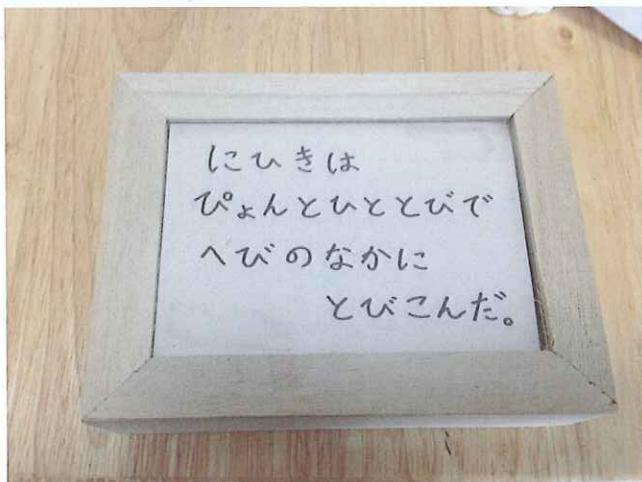 にひきは
ぴょんとひととびで
へびのなかに
とびこんだ。